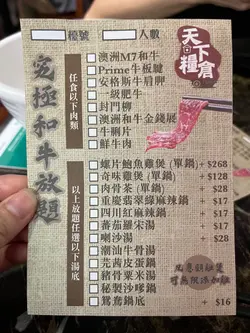 檯號 人數
天下糧倉
究極和牛放題
任食以下肉類
澳洲M7和牛
Prime牛板腱
安格斯牛肩胛
一級肥牛
封門柳
澳洲和牛金錢展
牛脷片
鮮牛肉
以上放題任選以下湯底
螺片鮑魚雞煲 (單鍋) + $268
奇味雞煲 (單鍋) + $128
肉骨茶(單鍋) + $28
重慶翡翠綠麻辣鍋 + $38
四川紅麻辣鍋 + $38
蕃茄羅宋湯 + $18
喇沙湯 + $28
潮汕牛骨湯
芫茜皮蛋鍋
豬骨粟米湯
秘製沙嗲鍋
鴛鴦鍋底 + $16